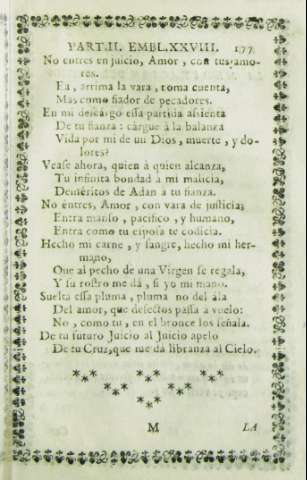 PART.II. EMBL.XXVIII. 177
No entres en juicio, Amor, con tus amo-
res.
Ea, arrima la vara, toma cuenta,
Mas como fiador de pecadores.
En mi descargo essa partida assienta
De tu fianza: cárgue à la balanza
Vida por mi de un Dios, muerte, y do-
lores?
Vease ahora, quien à quien alcanza,
Tu infinita bondad à mi malicia,
Deméritos de Adan à tu fianza.
No entres, Amor, con vara de justicia;
Entra manso, pacifico, y humano,
Entra como tu esposa te codicia.
Hecho mi carne, y sangre, hecho mi her-
mano,
Que al pecho de una Virgen se regala,
Y su rostro me dá, si yo mi mano.
Suelta essa pluma, pluma no del ála
Del amor, que defectos passa a vuelo:
No, como tu, en el bronce los señala.
De tu futuro Juicio al Juicio apelo
De tu Cruz, que me dá libranza al Cielo.
M LA